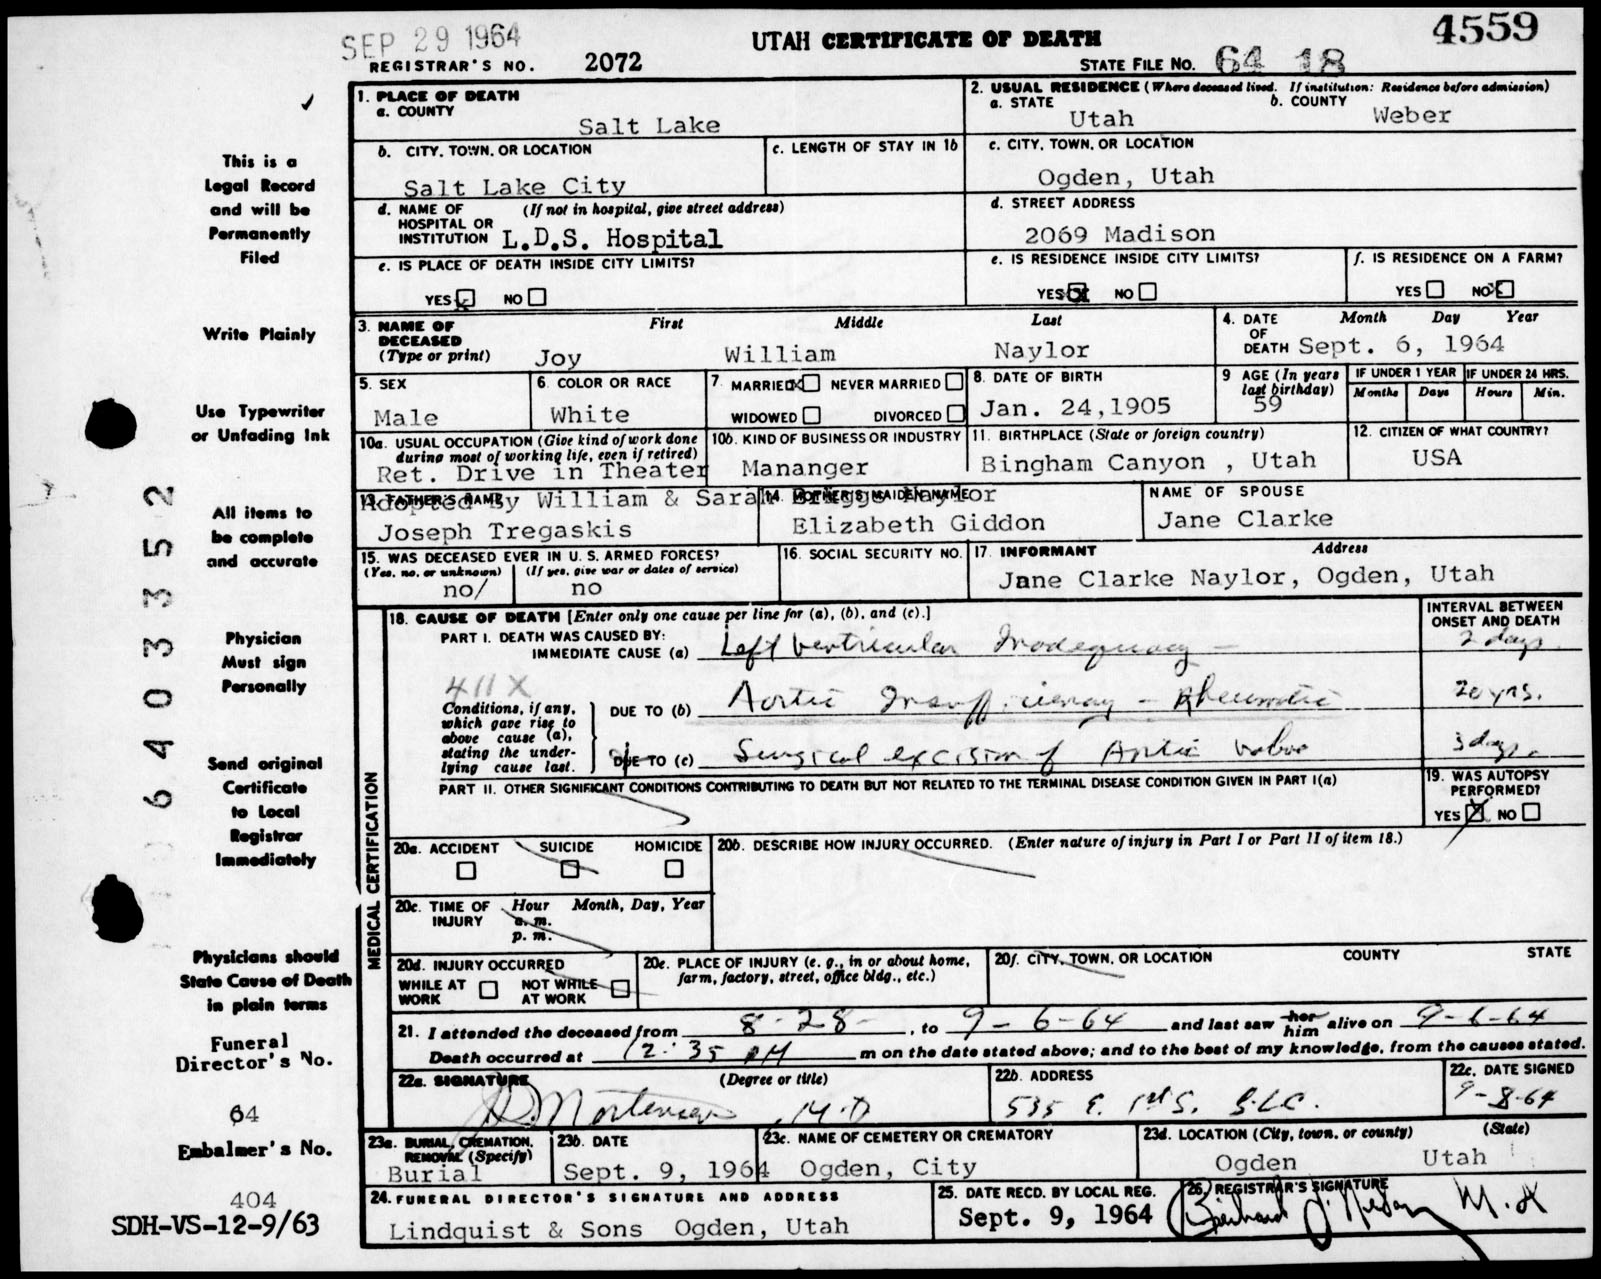 SEP 29 1964
UTAH CERTIFICATE OF DEATH
4559
REGISTRAR'S NO. 2072
STATE FILE NO. 64 18
1. PLACE OF DEATH
a. COUNTY
Salt Lake
2. USUAL RESIDENCE (Where deceased lived. If institution: Residence before admission)
a. STATE b. COUNTY
Utah Weber
b. CITY, TOWN, OR LOCATION
Salt Lake City
c. LENGTH OF STAY IN 1b
c. CITY, TOWN, OR LOCATION
Ogden, Utah
d. NAME OF (If not in hospital, give street address)
HOSPITAL OR
INSTITUTION L.D.S. Hospital
d. STREET ADDRESS
2069 Madison
e. IS PLACE OF DEATH INSIDE CITY LIMITS?
YES x NO
e. IS RESIDENCE INSIDE CITY LIMITS?
YES X NO
f. IS RESIDENCE ON A FARM?
YES NO X
3. NAME OF First Middle Last
DECEASED
(Type or print) Joy William Naylor
4. DATE Month Day Year
OF
DEATH Sept. 6, 1964
5. SEX
Male
6. COLOR OR RACE
White
7. MARRIED X NEVER MARRIED
WIDOWED DIVORCED
8. DATE OF BIRTH
Jan. 24,1905
9 AGE (In years
last birthday)
59
IF UNDER 1 YEAR IF UNDER 24 HRS.
Months Days Hours Min.
10a. USUAL OCCUPATION (Give kind of work done
during most of working life, even if retired)
Ret. Drive in Theater
10b. KIND OF BUSINESS OR INDUSTRY
Mananger
11. BIRTHPLACE (State or foreign country)
Bingham Canyon , Utah
12. CITIZEN OF WHAT COUNTRY?
USA
Adopted By William & Sarah Briggs Naylor
13. FATHER'S NAME
Joseph Tregaskis
14. MOTHER'S MAIDEN NAME
Elizabeth Giddon
NAME OF SPOUSE
Jane Clarke
15. WAS DECEASED EVER IN U. S. ARMED FORCES?
(Yes, no, or unknown) (If yes, give war or dates of service)
no/ no
16. SOCIAL SECURITY NO.
17. INFORMANT Address
Jane Clarke Naylor, Ogden, Utah
MEDICAL CERTIFICATION
18. CAUSE OF DEATH [Enter only one cause per line for (a), (b), and (c).]
INTERVAL BETWEEN
ONSET AND DEATH
PART I. DEATH WAS CAUSED BY:
IMMEDIATE CAUSE (a) Left Ventricular Inadequacy – 2 days
411X
Conditions, if any,
which gave rise to
above cause (a),
stating the under-
lying cause last.
DUE TO (b) Aortic Insufficiency – Rheumatic 20 yrs.
DUE TO (c) Surgical excision of Aortic Valve 3 days.
PART II. OTHER SIGNIFICANT CONDITIONS CONTRIBUTING TO DEATH BUT NOT RELATED TO THE TERMINAL DISEASE CONDITION GIVEN IN PART I(a)
19. WAS AUTOPSY
PERFORMED?
YES X NO
20a. ACCIDENT SUICIDE HOMICIDE
20b. DESCRIBE HOW INJURY OCCURRED. (Enter nature of injury in Part I or Part II of item 18.)
20c. TIME OF Hour Month, Day, Year
INJURY a. m.
p. m.
20d. INJURY OCCURRED
WHILE AT NOT WHILE
WORK AT WORK
20e. PLACE OF INJURY (e. g., in or about home,
farm, factory, street, office bldg., etc.)
20f. CITY, TOWN, OR LOCATION COUNTY STATE
21. I attended the deceased from 8-28- , to 9-6-64 and last saw her him alive on 9-6-64
Death occurred at 12:35 PM m on the date stated above; and to the best of my knowledge, from the causes stated.
22a. SIGNATURE (Degree or title)
Mortensen, M.D
22b. ADDRESS
535 E. 1st S. S.L.C.
22c. DATE SIGNED
9-8-64
23a. BURIAL, CREMATION,
REMOVAL (Specify)
Burial
23b. DATE
Sept. 9, 1964
23c. NAME OF CEMETERY OR CREMATORY
Ogden, City
23d. LOCATION (City, town, or county) (State)
Ogden Utah
24. FUNERAL DIRECTOR'S SIGNATURE AND ADDRESS
Lindquist & Sons Ogden, Utah
25. DATE RECD. BY LOCAL REG.
Sept. 9, 1964
26. REGISTRAR'S SIGNATURE
This is a
Legal Record
and will be
Permanently
Filed
Write Plainly
Use Typewriter
or Unfading Ink
All items to
be complete
and accurate
Physician
Must sign
Personally
Send original
Certificate
to Local
Registrar
Immediately
Physicians should
State Cause of Death
in plain terms
Funeral
Director's No.
64
Embalmer's No.
404
SDH-VS-12-9/63
6403352